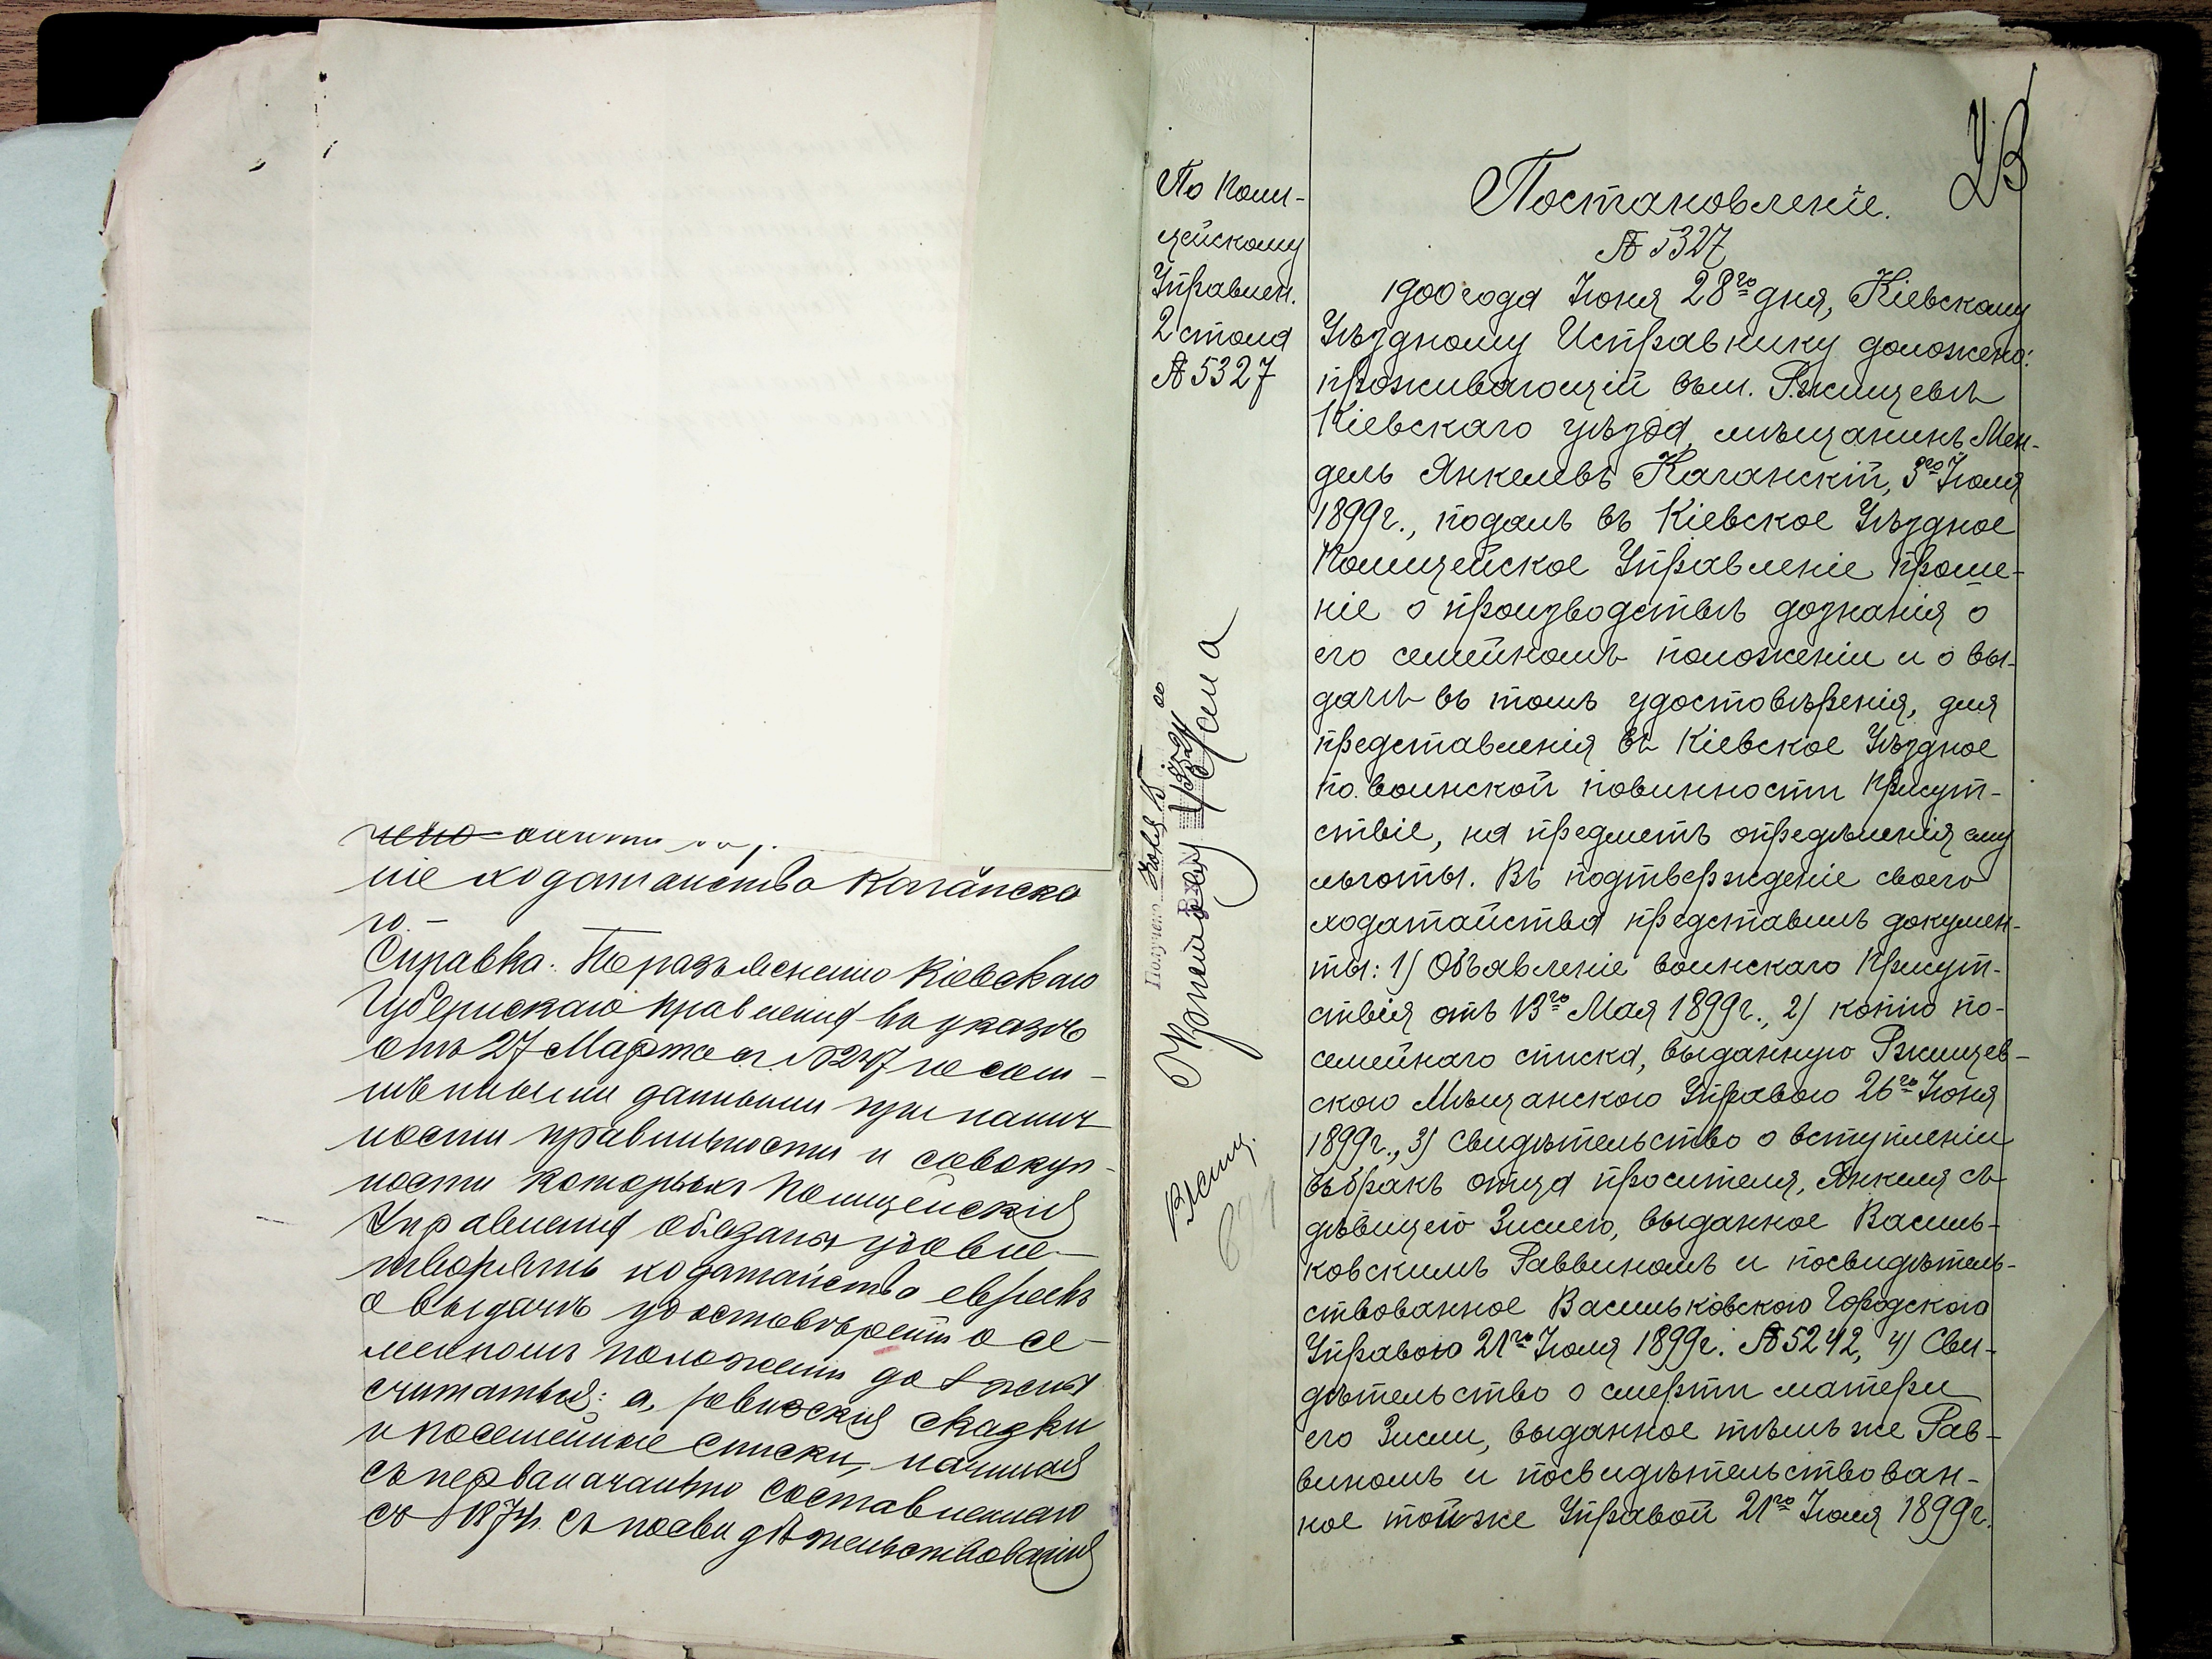 ніе ходатайства Каганска
го.
Справка. По разъясненію Кіевскаго
Губернскаго Правленія въ указѣ
отъ 27 Марта
данными при налич
ности правильности и совокуп-
ности которыхъ Полицейскія
Управленія обязаны удовле-
творять ходатайства евреевъ
о выдачѣ удостовѣреній о се-
мейномъ положеніи должны
считаться: а, ревизскія сказки
и посемейные списки, начиная
съ первоначально составленнаго
въ 1874 г. съ посвидѣтельствованія
По Поли-
цейскому
Управлен.
2 стола
№ 5327
Получено
УВ
Постановленіе.
№ 5327
1900 года Іюня 28го дня, Кіевскому
Уѣздному Исправнику доложено:
проживающій въ м. Ржищевѣ
Кіевскаго уѣзда, мѣщанинъ Мен-
дель Янкелевъ Каганскій, 3го Іюля
1899 г., подалъ въ Кіевское Уѣздное
Полицейское Управленіе проше-
ніе о производствѣ дознанія о
его семейномъ положеніи и о вы-
дачѣ въ томъ удостовѣренія, для
представленія въ Кіевское Уѣздное
по воинской повинности Присут-
ствіе, на предметъ опредѣленія ему
льготы. Въ подтвержденіе своего
ходатайства представилъ докумен-
ты: 1) Объявленіе воинскаго Присут-
ствія отъ 13го Мая 1899 г., 2) копію по-
семейнаго списка, выданную Ржищев-
скою Мѣщанскою Управою 26го Іюня
1899 г., 3) Свидѣтельство о вступленіи
въ бракъ отца просителя, Янкеля съ
дѣвицею Зислею, выданное Василь-
ковскимъ Раввиномъ и посвидѣтель-
ствованное Васильковскою Городскою
Управою 21го Іюля 1899 г. № 5242, 4) Сви-
дѣтельство о смерти матери
его Зисли, выданное тѣмъ же Рав-
виномъ и посвидѣтельствован-
ное той же Управой 21го Іюля 1899 г.